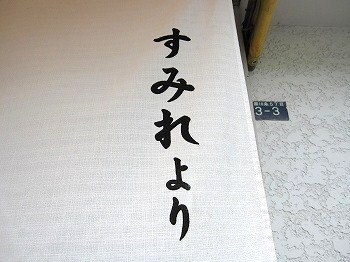 すみれより
3-3